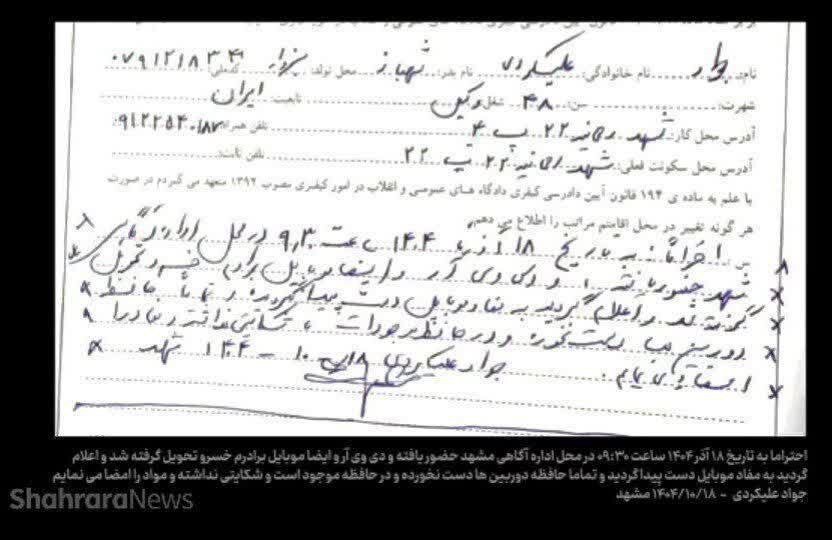 نام: جواد نام خانوادگی: علیکردی نام پدر: شهباز محل تولد: سبزوار کدملی: ۰۷۹۱۲۱۸۳۴۱
شهرت: سن: ۴۸ شغل: وکیل تابعیت: ایران
آدرس محل کار: مشهد ۲۲ پ ۴ تلفن همراه: ۹۱۲۲۵۴۰۱۸۷
آدرس محل سکونت فعلی: مشهد ۲۲ پ ۲۲ تلفن ثابت:
با علم به ماده ی ۱۹۴ قانون آیین دادرسی کیفری دادگاه های عمومی و انقلاب در امور کیفری مصوب ۱۳۹۲ متعهد می گردم در صورت
هر گونه تغییر در محل اقامتم مراتب را اطلاع می دهم.
احتراماً: به تاریخ ۱۸ آذر ۱۴۰۴ ساعت ۹:۳۰ در محل اداره آگاهی
مشهد حضور یافته و دی وی آر و ایضا موبایل برادرم خسرو تحویل
گرفته شد و اعلام گردید به مفاد موبایل دست پیدا گردیده و تماما حافظه
دوربین ها دست نخورده و در حافظه موجود است و شکایتی نداشته و مفاد را
امضا می نمایم. جواد علیکردی ۱۸-۱۰-۱۴۰۴ مشهد
احتراما به تاریخ ۱۸ آذر ۱۴۰۴ ساعت ۰۹:۳۰ در محل اداره آگاهی مشهد حضور یافته و دی وی آر و ایضا موبایل برادرم خسرو تحویل گرفته شد و اعلام
گردید به مفاد موبایل دست پیدا گردید و تماما حافظه دوربین ها دست نخورده و در حافظه موجود است و شکایتی نداشته و مواد را امضا می نمایم
جواد علیکردی - ۱۴۰۴/۱۰/۱۸ مشهد
ShahraraNews